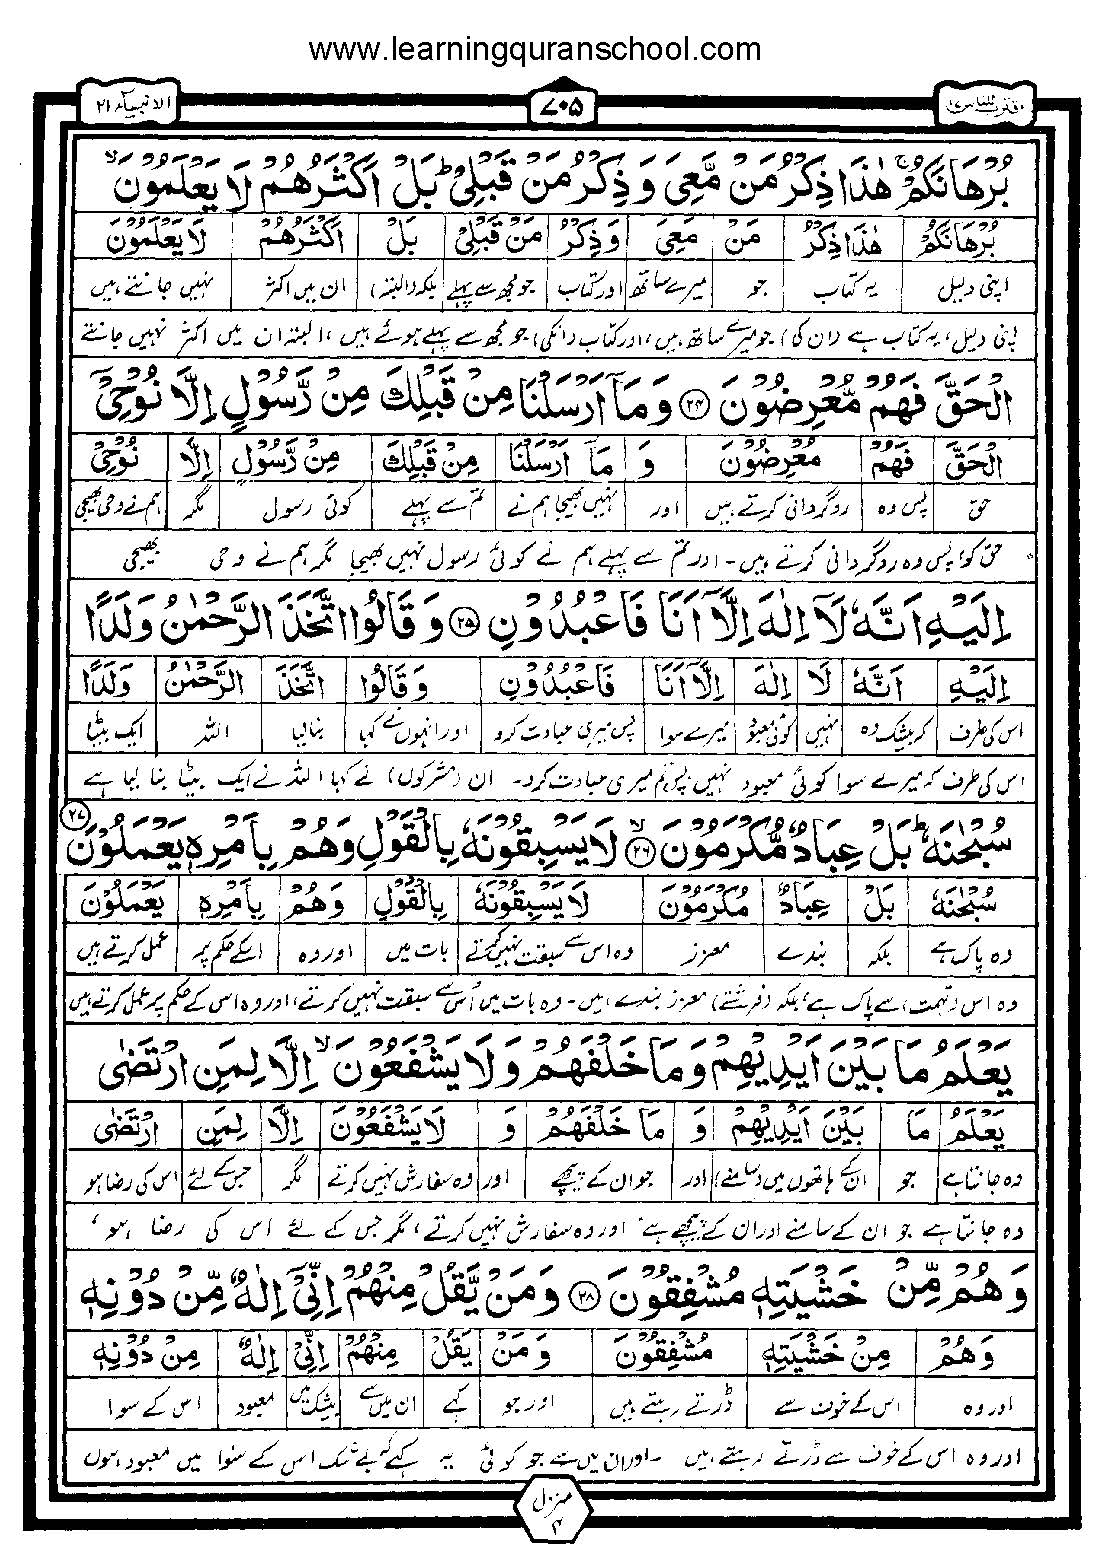 www.learningquranschool.com
اقترب للناس ۱۷
۷۰۵
الانبیاء ۲۱
بُرْهَانَكُمْ ۚ هٰذَا ذِكْرُ مَنْ مَّعِيَ وَ ذِكْرُ مَنْ قَبْلِيْ ؕ بَلْ اَكْثَرُهُمْ لَا يَعْلَمُوْنَ ۙ
بُرْهَانَكُمْ هٰذَا ذِكْرُ مَنْ مَّعِيَ وَ ذِكْرُ مَنْ قَبْلِيْ بَلْ اَكْثَرُهُمْ لَا يَعْلَمُوْنَ
اپنی دلیل یہ کتاب جو میرے ساتھ اور کتاب جو مجھ سے پہلے بلکہ (البتہ) ان میں اکثر نہیں جانتے ہیں
اپنی دلیل، یہ کتاب ہے (ان کی) جو میرے ساتھ ہیں، اور کتاب (انکی) جو مجھ سے پہلے ہوئے ہیں، البتہ ان میں اکثر نہیں جانتے
الْحَقَّ فَهُمْ مُّعْرِضُوْنَ ۲۴ وَ مَآ اَرْسَلْنَا مِنْ قَبْلِكَ مِنْ رَّسُوْلٍ اِلَّا نُوْحِيْٓ
الْحَقَّ فَهُمْ مُعْرِضُوْنَ وَ مَآ اَرْسَلْنَا مِنْ قَبْلِكَ مِنْ رَّسُوْلٍ اِلَّا نُوْحِيْٓ
حق پس وہ روگردانی کرتے ہیں اور نہیں بھیجا ہم نے تم سے پہلے کوئی رسول مگر ہم نے وحی بھیجی
حق کو، پس وہ روگردانی کرتے ہیں۔ اور تم سے پہلے ہم نے کوئی رسول نہیں بھیجا مگر ہم نے وحی بھیجی
اِلَيْهِ اَنَّهٗ لَآ اِلٰهَ اِلَّآ اَنَا فَاعْبُدُوْنِ ۲۵ وَ قَالُوا اتَّخَذَ الرَّحْمٰنُ وَلَدًا
اِلَيْهِ اَنَّهٗ لَآ اِلٰهَ اِلَّآ اَنَا فَاعْبُدُوْنِ وَ قَالُوا اتَّخَذَ الرَّحْمٰنُ وَلَدًا
اس کی طرف کہ بیشک وہ نہیں کوئی معبود میرے سوا پس میری عبادت کرو اور انہوں نے کہا بنا لیا اللہ ایک بیٹا
اس کی طرف کہ میرے سوا کوئی معبود نہیں پس تم میری عبادت کرو۔ ان (مشرکوں) نے کہا اللہ نے ایک بیٹا بنا لیا ہے
سُبْحٰنَهٗ ؕ بَلْ عِبَادٌ مُّكْرَمُوْنَ ۙ ۲۶ لَا يَسْبِقُوْنَهٗ بِالْقَوْلِ وَ هُمْ بِاَمْرِهٖ يَعْمَلُوْنَ ۲۷
سُبْحٰنَهٗ بَلْ عِبَادٌ مُكْرَمُوْنَ لَا يَسْبِقُوْنَهٗ بِالْقَوْلِ وَ هُمْ بِاَمْرِهٖ يَعْمَلُوْنَ
وہ پاک ہے بلکہ بندے معزز وہ اس سے سبقت نہیں کرتے بات میں اور وہ اسکے حکم پر عمل کرتے ہیں
وہ اس (تہمت) سے پاک ہے، بلکہ (فرشتے) معزز بندے ہیں۔ وہ بات میں اُس سے سبقت نہیں کرتے، اور وہ اس کے حکم پر عمل کرتے ہیں
يَعْلَمُ مَا بَيْنَ اَيْدِيْهِمْ وَ مَا خَلْفَهُمْ وَ لَا يَشْفَعُوْنَ ۙ اِلَّا لِمَنِ ارْتَضٰى
يَعْلَمُ مَا بَيْنَ اَيْدِيْهِمْ وَ مَا خَلْفَهُمْ وَ لَا يَشْفَعُوْنَ اِلَّا لِمَنِ ارْتَضٰى
وہ جانتا ہے جو ان کے ہاتھوں میں (سامنے) اور جو ان کے پیچھے اور وہ سفارش نہیں کرتے مگر جس کے لئے اس کی رضا ہو
وہ جانتا ہے جو ان کے سامنے اور ان کے پیچھے ہے، اور وہ سفارش نہیں کرتے، مگر جس کے لئے اس کی رضا ہو،
وَ هُمْ مِّنْ خَشْيَتِهٖ مُشْفِقُوْنَ ۲۸ وَ مَنْ يَّقُلْ مِنْهُمْ اِنِّيْٓ اِلٰهٌ مِّنْ دُوْنِهٖ
وَ هُمْ مِنْ خَشْيَتِهٖ مُشْفِقُوْنَ وَ مَنْ يَقُلْ مِنْهُمْ اِنِّيْٓ اِلٰهٌ مِنْ دُوْنِهٖ
اور وہ اس کے خوف سے ڈرتے رہتے ہیں اور جو کہے ان میں سے بیشک میں معبود اس کے سوا
اور وہ اس کے خوف سے ڈرتے رہتے ہیں۔ اور ان میں سے جو کوئی یہ کہے کہ بے شک اس کے سوا میں معبود ہوں
منزل ۴